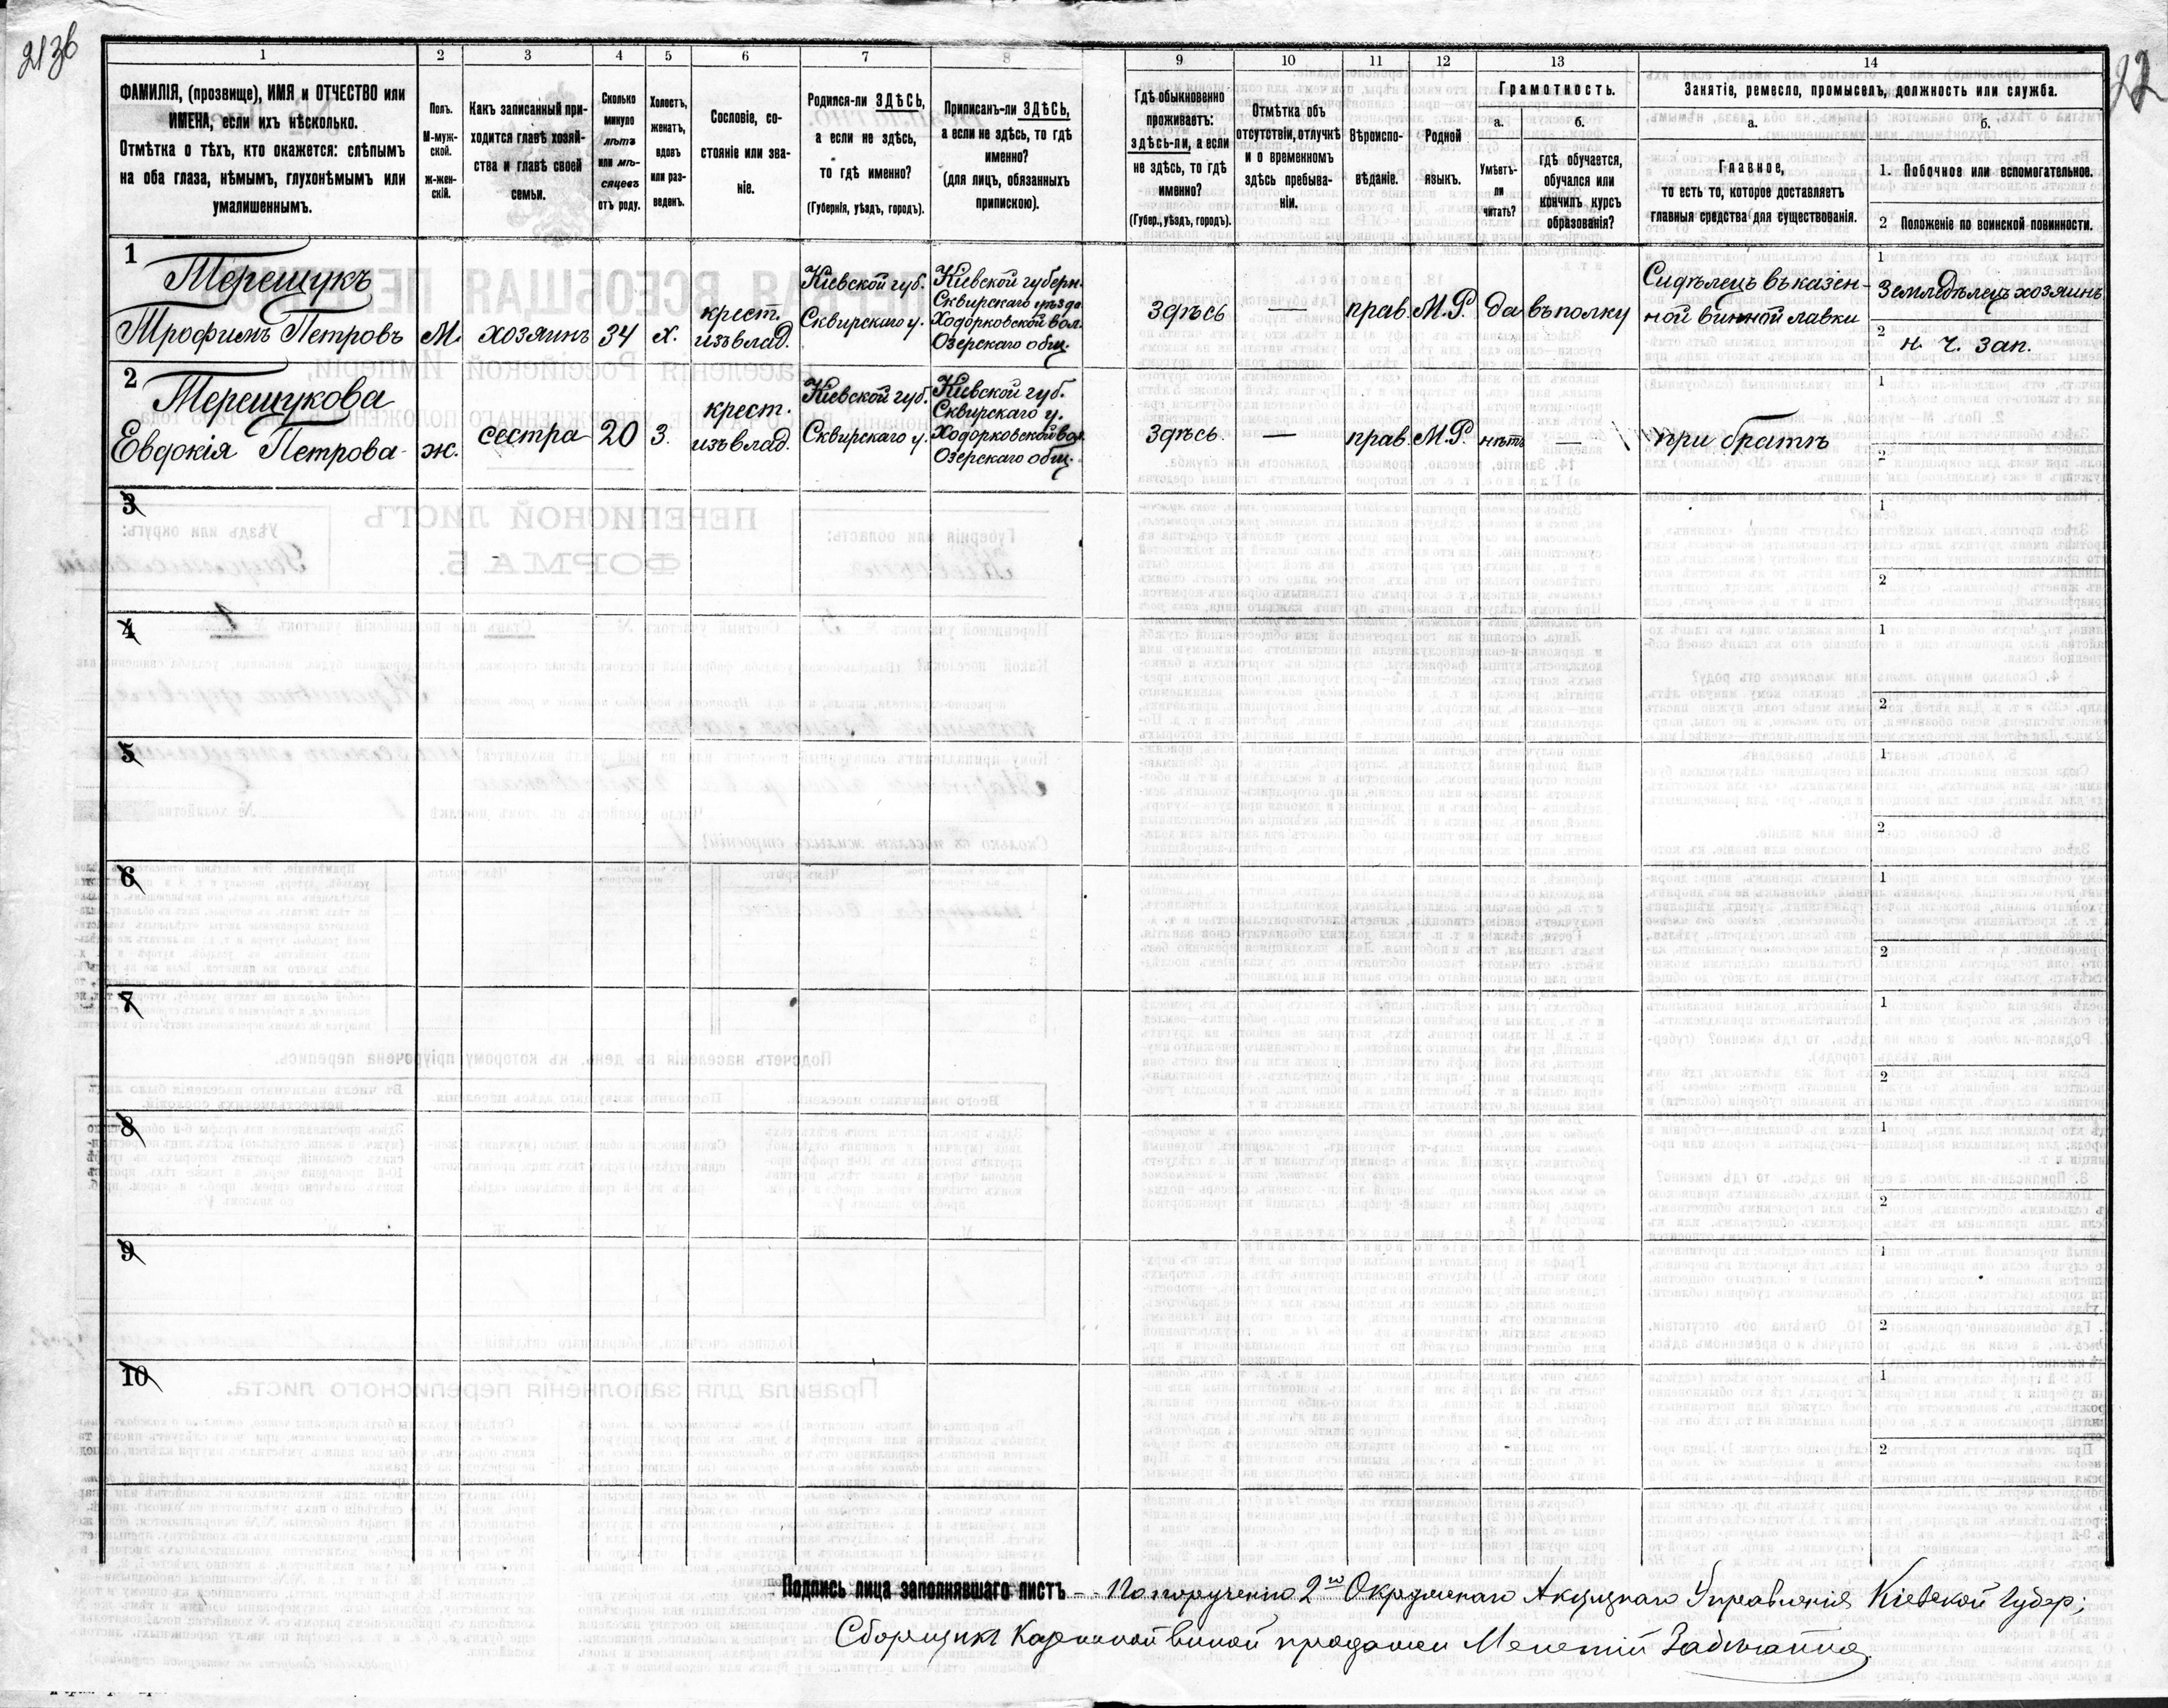 213б
22
1
2
3
4
5
6
7
8
9
10
11
12
13
14
ФАМИЛІЯ, (прозвище), ИМЯ и ОТЧЕСТВО или
ИМЕНА, если ихъ нѣсколько.
Отмѣтка о тѣхъ, кто окажется: слѣпымъ
на оба глаза, нѣмымъ, глухонѣмымъ или
умалишеннымъ.
Полъ.
М-муж-
ской.
ж-жен-
скій.
Какъ записанный при-
ходится главѣ хозяй-
ства и главѣ своей
семьи.
Сколько
минуло
лѣтъ
или мѣ-
сяцевъ
отъ роду.
Холостъ,
женатъ,
вдовъ
или раз-
веденъ.
Сословіе, со-
стояніе или зва-
ніе.
Родился-ли ЗДѢСЬ,
а если не здѣсь,
то гдѣ именно?
(Губернія, уѣздъ, городъ).
Приписанъ-ли ЗДѢСЬ,
а если не здѣсь, то гдѣ
именно?
(для лицъ, обязанныхъ
припискою).
Гдѣ обыкновенно
проживаетъ:
здѣсь-ли, а если
не здѣсь, то гдѣ
именно?
(Губер., уѣздъ, городъ).
Отмѣтка объ
отсутствіи, отлучкѣ
и о временномъ
здѣсь пребыва-
ніи.
Вѣроиспо-
вѣданіе.
Родной
языкъ.
Грамотность.
а.
Умѣетъ-
ли
читать?
б.
гдѣ обучается,
обучался или
кончилъ курсъ
образованія?
Занятіе, ремесло, промыселъ, должность или служба.
а.
Главное,
то есть то, которое доставляетъ
главныя средства для существованія.
б.
1. Побочное или вспомогательное.
2 Положеніе по воинской повинности.
1
Терещукъ
Трофимъ Петровъ
М.
хозяинъ
34
х.
крест.
изъ влад.
Кіевской губ.
Сквирскаго у.
Кіевской губерн.
Сквирскаго уѣзда
Ходорковской вол.
Озерскаго общ.
Здѣсь
—
прав.
М.Р.
да
въ полку
Сидѣлецъ въ казен-
ной винной лавки
1
Земледѣлецъ хозяинъ
2
н. ч. зап.
2
Терещукова
Евдокія Петрова
ж.
сестра
20
з.
крест.
изъ влад.
Кіевской губ.
Сквирскаго у.
Кіевской губ.
Сквирскаго у.
Ходорковской вол.
Озерскаго общ.
Здѣсь
—
прав.
М.Р.
нѣтъ
—
при братѣ
1
2
3
1
2
4
1
2
5
1
2
6
1
2
7
1
2
8
1
2
9
1
2
10
1
2
Подпись лица заполнявшаго листъ По порученію 2го Окружнаго Акцизнаго Управленія Кіевской Губер;
Сборщикъ Казенной винной продажи Мелетій